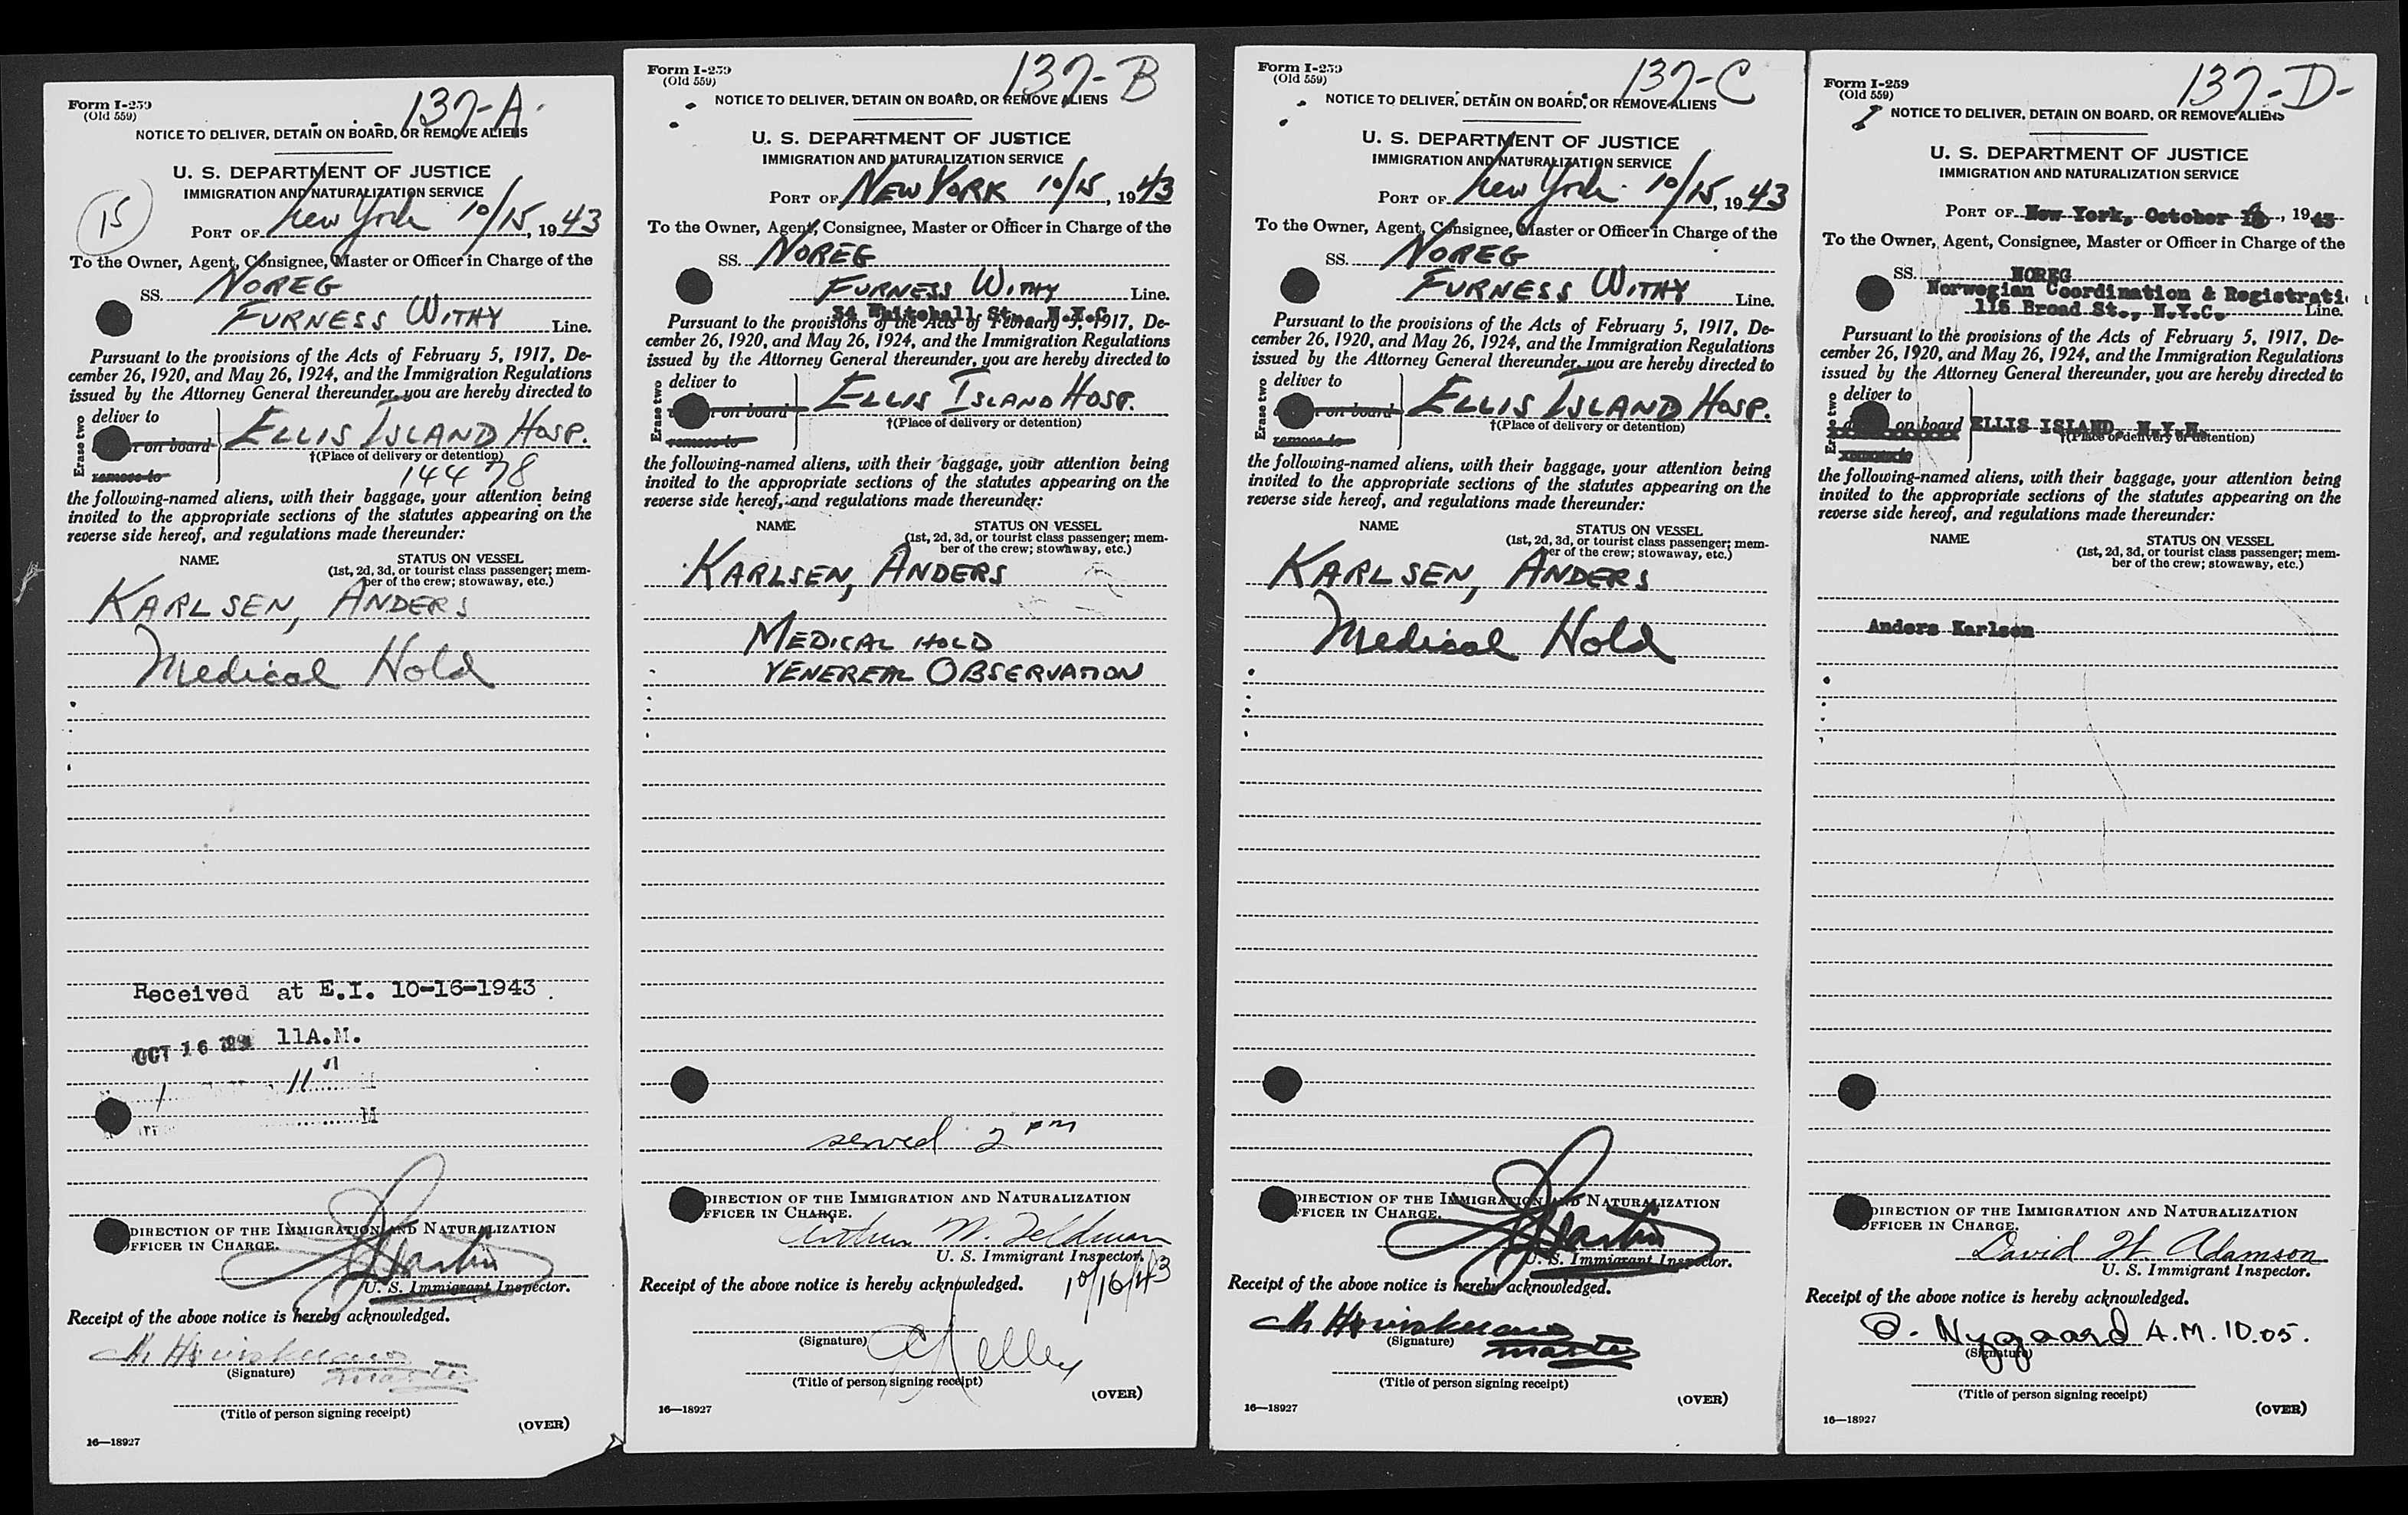 Form I-259
(Old 559)
137-A
NOTICE TO DELIVER, DETAIN ON BOARD, OR REMOVE ALIENS
U. S. DEPARTMENT OF JUSTICE
IMMIGRATION AND NATURALIZATION SERVICE
15
PORT OF New York 10/15, 1943
To the Owner, Agent, Consignee, Master or Officer in Charge of the
SS. NOREG
FURNESS WITHY Line.
Pursuant to the provisions of the Acts of February 5, 1917, De-
cember 26, 1920, and May 26, 1924, and the Immigration Regulations
issued by the Attorney General thereunder, you are hereby directed to
Erase two
deliver to
on board
remove to
ELLIS ISLAND HOSP.
†(Place of delivery or detention)
144 78
the following-named aliens, with their baggage, your attention being
invited to the appropriate sections of the statutes appearing on the
reverse side hereof, and regulations made thereunder:
NAME STATUS ON VESSEL
(1st, 2d, 3d, or tourist class passenger; mem-
ber of the crew; stowaway, etc.)
KARLSEN, ANDERS
Medical Hold
Received at E.I. 10-16-1943
OCT 16 11A.M.
1 11
M
DIRECTION OF THE IMMIGRATION AND NATURALIZATION
OFFICER IN CHARGE.
U. S. Immigrant Inspector.
Receipt of the above notice is hereby acknowledged.
master
(Signature)
(Title of person signing receipt)
(OVER)
16—18927
Form I-259
(Old 559)
137-B
NOTICE TO DELIVER, DETAIN ON BOARD, OR REMOVE ALIENS
U. S. DEPARTMENT OF JUSTICE
IMMIGRATION AND NATURALIZATION SERVICE
PORT OF NEW YORK 10/15, 1943
To the Owner, Agent, Consignee, Master or Officer in Charge of the
SS. NOREG
FURNESS WITHY Line.
34 Whitehall St., N.Y.C.
Pursuant to the provisions of the Acts of February 5, 1917, De-
cember 26, 1920, and May 26, 1924, and the Immigration Regulations
issued by the Attorney General thereunder, you are hereby directed to
Erase two
deliver to
on board
remove to
ELLIS ISLAND HOSP.
†(Place of delivery or detention)
the following-named aliens, with their baggage, your attention being
invited to the appropriate sections of the statutes appearing on the
reverse side hereof, and regulations made thereunder:
NAME STATUS ON VESSEL
(1st, 2d, 3d, or tourist class passenger; mem-
ber of the crew; stowaway, etc.)
KARLSEN, ANDERS
MEDICAL HOLD
VENEREAL OBSERVATION
served 2 pm
DIRECTION OF THE IMMIGRATION AND NATURALIZATION
OFFICER IN CHARGE.
Arthur M. Feldman
U. S. Immigrant Inspector.
Receipt of the above notice is hereby acknowledged. 10/16/43
(Signature) Kelley
(Title of person signing receipt)
(OVER)
16—18927
Form I-259
(Old 559)
137-C
NOTICE TO DELIVER, DETAIN ON BOARD, OR REMOVE ALIENS
U. S. DEPARTMENT OF JUSTICE
IMMIGRATION AND NATURALIZATION SERVICE
PORT OF New York 10/15, 1943
To the Owner, Agent, Consignee, Master or Officer in Charge of the
SS. NOREG
FURNESS WITHY Line.
Pursuant to the provisions of the Acts of February 5, 1917, De-
cember 26, 1920, and May 26, 1924, and the Immigration Regulations
issued by the Attorney General thereunder, you are hereby directed to
Erase two
deliver to
on board
remove to
ELLIS ISLAND HOSP.
†(Place of delivery or detention)
the following-named aliens, with their baggage, your attention being
invited to the appropriate sections of the statutes appearing on the
reverse side hereof, and regulations made thereunder:
NAME STATUS ON VESSEL
(1st, 2d, 3d, or tourist class passenger; mem-
ber of the crew; stowaway, etc.)
KARLSEN, ANDERS
Medical Hold
DIRECTION OF THE IMMIGRATION AND NATURALIZATION
OFFICER IN CHARGE.
U. S. Immigrant Inspector.
Receipt of the above notice is hereby acknowledged.
(Signature) master
(Title of person signing receipt)
(OVER)
16—18927
Form I-259
(Old 559)
137-D-
NOTICE TO DELIVER, DETAIN ON BOARD, OR REMOVE ALIENS
U. S. DEPARTMENT OF JUSTICE
IMMIGRATION AND NATURALIZATION SERVICE
PORT OF New York, October , 1943
To the Owner, Agent, Consignee, Master or Officer in Charge of the
SS. NOREG
Norwegian Coordination & Registrati
115 Broad St., N.Y.C. Line.
Pursuant to the provisions of the Acts of February 5, 1917, De-
cember 26, 1920, and May 26, 1924, and the Immigration Regulations
issued by the Attorney General thereunder, you are hereby directed to
Erase two
deliver to
on board
remove to
ELLIS ISLAND, N.Y.H.
†(Place of delivery or detention)
the following-named aliens, with their baggage, your attention being
invited to the appropriate sections of the statutes appearing on the
reverse side hereof, and regulations made thereunder:
NAME STATUS ON VESSEL
(1st, 2d, 3d, or tourist class passenger; mem-
ber of the crew; stowaway, etc.)
Anders Karlsen
DIRECTION OF THE IMMIGRATION AND NATURALIZATION
OFFICER IN CHARGE.
David H Adamson
U. S. Immigrant Inspector.
Receipt of the above notice is hereby acknowledged.
O. Nygaard A.M. 10.05.
(Signature)
(Title of person signing receipt)
(OVER)
16—18927